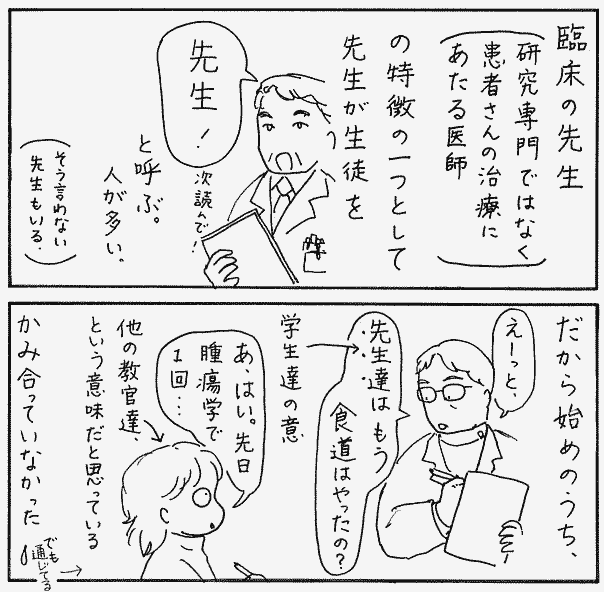 臨床の先生
研究専門ではなく
患者さんの治療に
あたる医師
の特徴の一つとして
先生が生徒を
先生!
次読んで!
と呼ぶ。
人が多い。
そう言わない
先生もいる。
だから始めのうち、
えーっと、
先生達はもう
食道はやったの?
学生達の意
あ、はい。先日
腫瘍学で
1回…
他の教官達、
という意味だと思っている
かみ合っていなかった
でも
通じてる